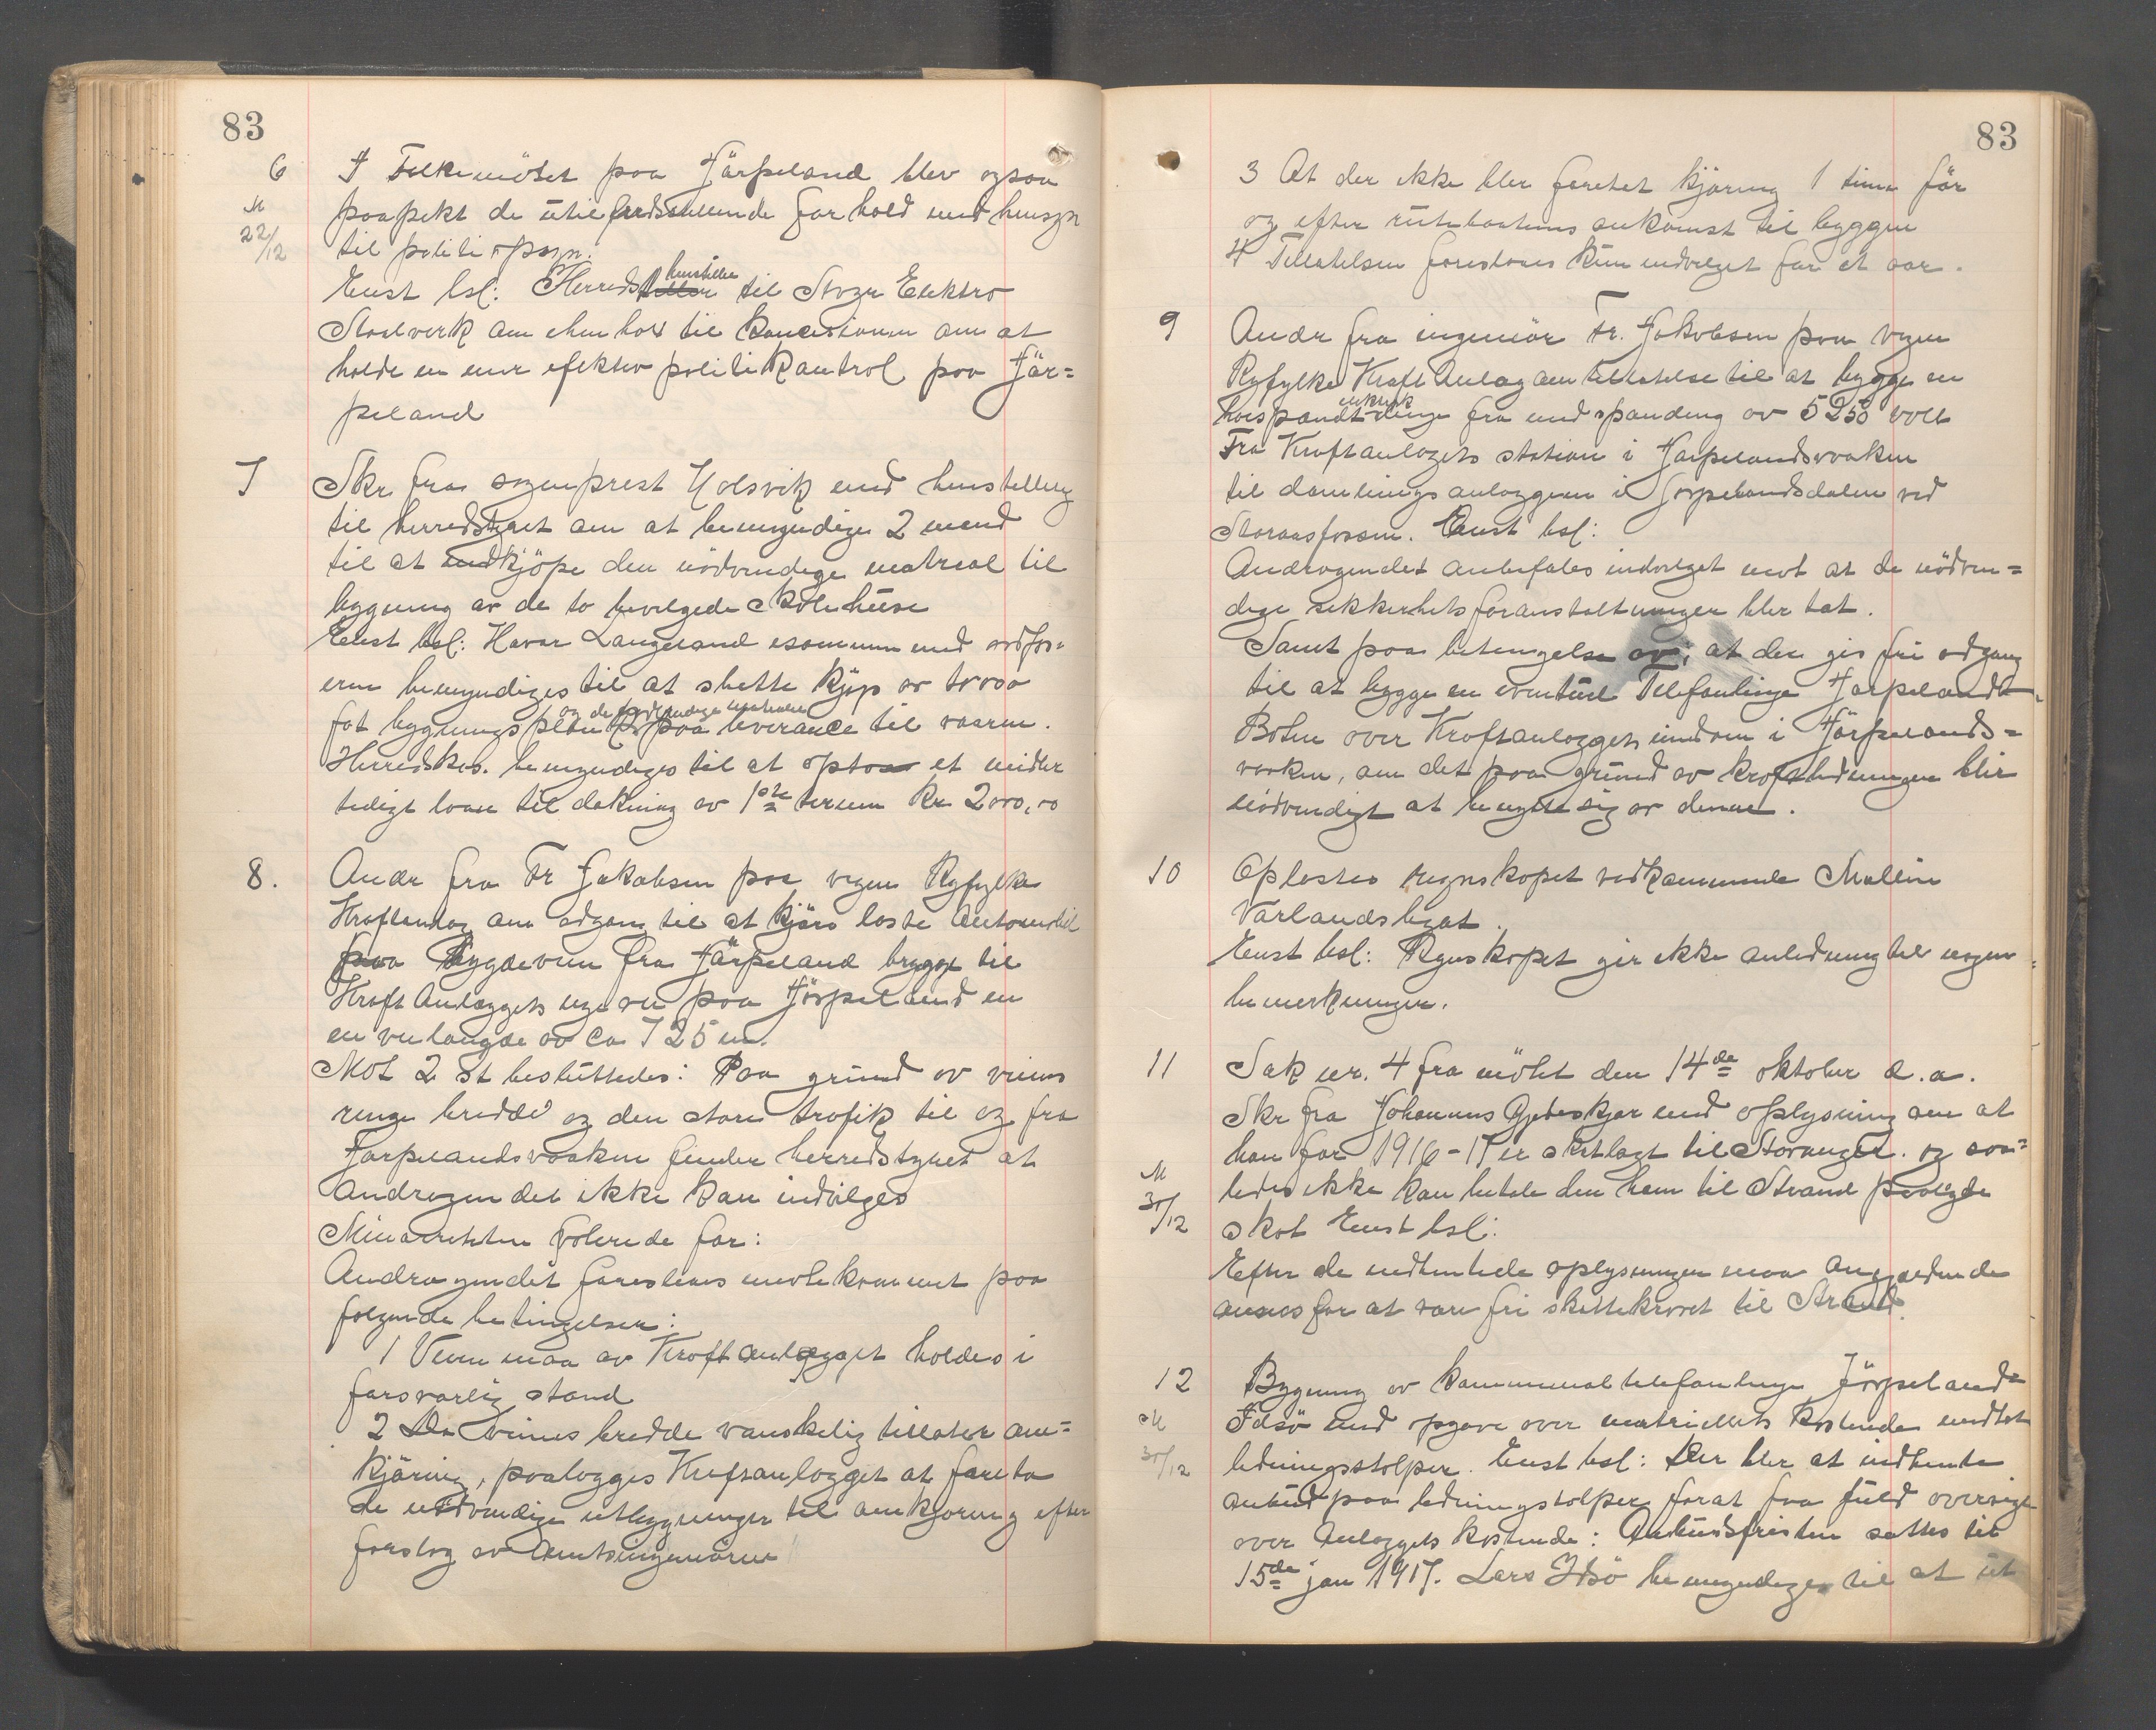 83
6 I Folkemötet paa Jörpeland blev ogsaa
M
22/12
paapekt de utilfredsstillende forhold med hensyn
til politiopsyn.
Enst bsl: Herredst henstiller til Stvgr Elektro
Staalverk om i henhold til koncesionen om at
holde en mer efektiv politikontrol paa Jör=
peland
7 Skr fra sogneprest Holsvik med henstilling
til herredstyret om at bemyndige 2 mend
til at indkjöpe den nödvendige matrial til
bygning av de to bevilgede skolehuse
Enst bsl: Havar Langeland sammen med ordfö=
eren bemyndiges til at slutte kjöp av to
og de nödvendige materialer
fot bygningsplan paa leverance til vaaren.
Herredskas. bemyndiges til at opta et midler
tidigt laan til dekning av 1ste termin Kr 2000,00
8. Andr fra Fr Jakobsen paa vegne Ryfylke
Kraftanlæg om adgang til at kjöre laste Automobil
paa bygdeveien fra Jörpeland brygge til
Kraft Anlæggets nye vei paa Jörpeland en
en veilængde av ca 725 m.
Mot 2 st besluttedes: Paa grund av veiens
ringe bredde og den store trafik til og fra
Jørpelandsvaaken finder herredstyret at
Andragendet ikke kan indvilges
Minoriteten voterede for:
Andragendet foreslaaes imøtekommet paa
følgende betingelser:
1 Veien maa av Kraftanlægget holdes i
forsvarlig stand
2 Da veiens bredde vanskelig tillater om=
kjöring, paalægges Kraftanlægget at foreta
de nödvendige utbygninger til omkjøring efter
forslag av Amtsingeniören
83
3 At der ikke blir foretat kjöring 1 time för
og efter rutebaatens ankomst til bryggen
4 Tillatelsen foreslaaes kun indvilget for et aar.
9 Andr fra ingeniör Fr. Jakobsen paa vegne
Ryfylke Kraft Anlæg om tillatelse til at bygge en
elektrisk
høispændt linje fra med spænding av 5250 volt
Fra Kraftanlægets station i Jørpelandsvaaken
til dæmningsanlæggene i Jørpelandsdalen ved
Storaasfossen. Enst bsl:
Andragendet anbefales indvilget mot at de nödven=
dige sikkerhetsforanstaltninger blir tat.
Samt paa betingelse av; at der gis fri adgang
til at bygge en eventuel Telefonlinje Jørpeland-
Botne over Kraftanlæggets eiendom i Jörpelands=
vaaken, om det paa grund av kraftledningen blir
nödvendigt at benytte sig av denne.
10 Oplæstes regnskapet vedkommende Malline
Varlandslegat.
Enst bsl: Regnskapet gir ikke anledning til nogen
bemerkninger.
11 Sak nr. 4 fra mötet den 14de oktober d.a.
Skr fra Johannes Gjeteskjær med oplysning om at
han for 1916-17 er skatlagt til Stavanger. og saa=
M
31/12
ledes ikke kan betale den ham til Strand paalagte
skat Enst bsl:
Efter de indhentede oplysninger maa Angjældende
ansees for at være fri skattekravet til Strand.
12 Bygning av kommunal telefonlinje Jörpeland=
M
31/12
Idsö med opgave over matriellets kostende undtat
ledningsstolper. Enst bsl: Der blir at indhente
anbud paa ledningstolper forat faa fuld oversigt
over Anlæggets kostende: Anbudsfristen sættes til
15de jan 1917. Lars Idsö bemyndiges til at ut